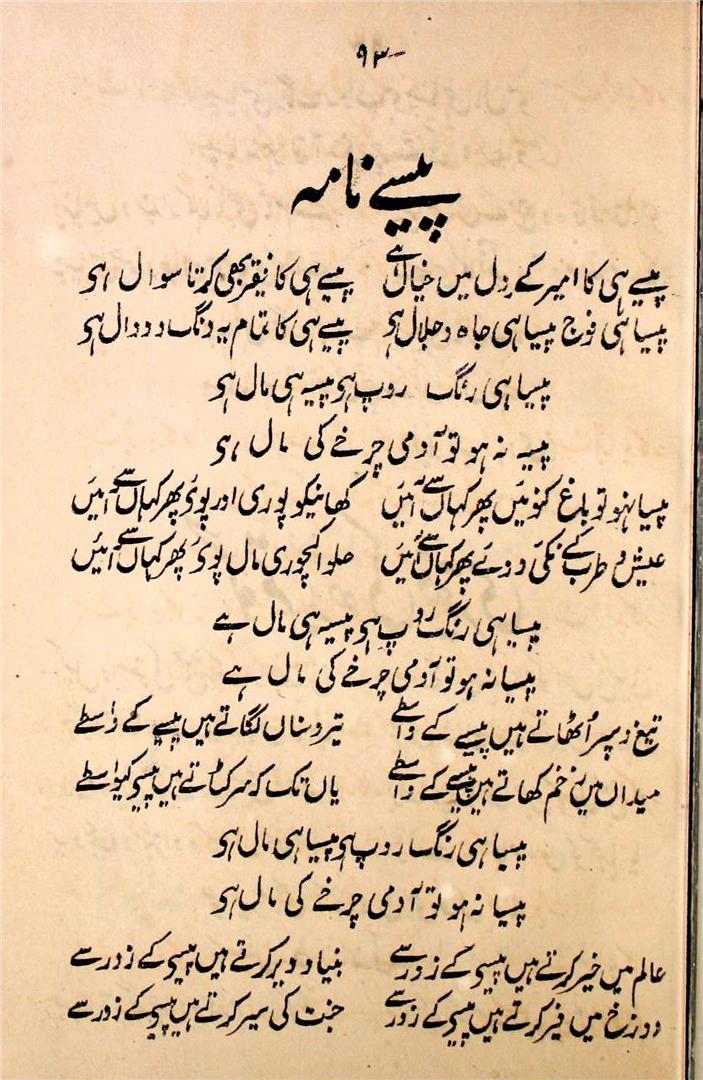 ۹۳-
پیسے نامہ
پیسے ہی کا امیر کے دل میں خیال ہے پیسے ہی کا فقیر بھی کرتا سوال ہی
پیسا ہی فوج پیسا ہی جاہ و جلال ہو پیسے ہی کا تمام یہ دنگ و دوال ہو
پیسا ہی رنگ روپ ہو پیسہ ہی مال ہو
پیسہ نہ ہو تو آدمی چرخے کی مال ہی
پیسا نہو تو باغ کنوئیں پھر کہاں سے آئیں کھانیکو پوری اور پوئے پھر کہاں سے آئیں
عیش و طرب کے نکی دوئے پھر کہاں سے آئیں حلوا کچوری مال پوئے پھر کہاں سے آئیں
پیسا ہی رنگ روپ ہو پیسہ ہی مال ہے
پیسا نہ ہو تو آدمی چرخے کی مال ہے
تیغ و سپر اُٹھاتے ہیں پیسے کے واسطے تیر و سناں لگاتے ہیں پیسے کے واسطے
میداں میں زخم کھاتے ہیں پیسے کے واسطے یاں تک کہ سر کٹاتے ہیں پیسو کیواسطے
پیسا ہی رنگ روپ ہو پیسا ہی مال ہو
پیسا نہ ہو تو آدمی چرخے کی مال ہو
عالم میں خیر کرتے ہیں پیسو کے زور سے بنیاد دیر کرتے ہیں پیسو کے زور سے
دوزخ میں فیر کرتے ہیں پیسو کے زور سے جنت کی سیر کرتے ہیں پیسو کے زور سے